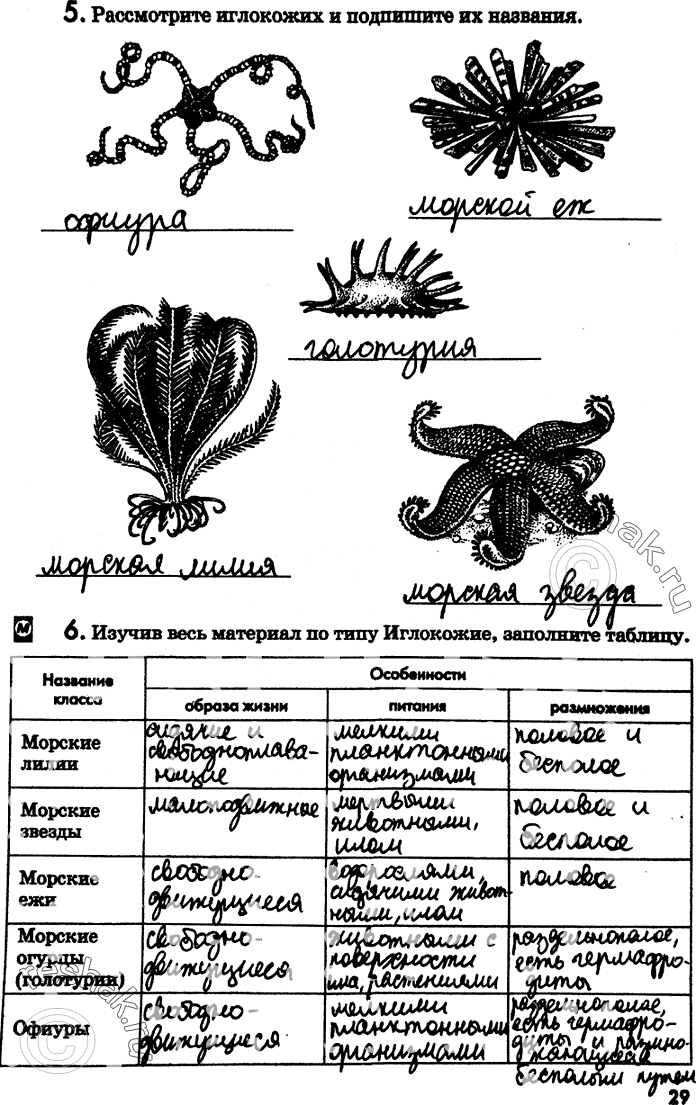 5. Рассмотрите иглокожих и подпишите их названия.
офиура
морской еж
голотурия
морская лилия
морская звезда
М
6. Изучив весь материал по типу Иглокожие, заполните таблицу.
Название класса
Особенности
образа жизни
питания
размножения
Морские
лилии
сидячие и
свободноплава-
ющие
мелкими
планктонными
организмами
половое и
бесполое
Морские
звезды
малоподвижные
мертвыми
животными,
илом
половое и
бесполое
Морские
ежи
свободно-
движущиеся
водорослями,
сидячими живот-
ными, илом
половое
Морские
огурцы
(голотурии)
свободно-
движущиеся
животными с
поверхности
ила, растениями
раздельнополое,
есть гермафро-
диты
Офиуры
свободно-
движущиеся
мелкими
планктонными
организмами
раздельнополое,
есть гермафро-
диты и размно-
жающиеся
бесполым путем
29
©reshak.ru